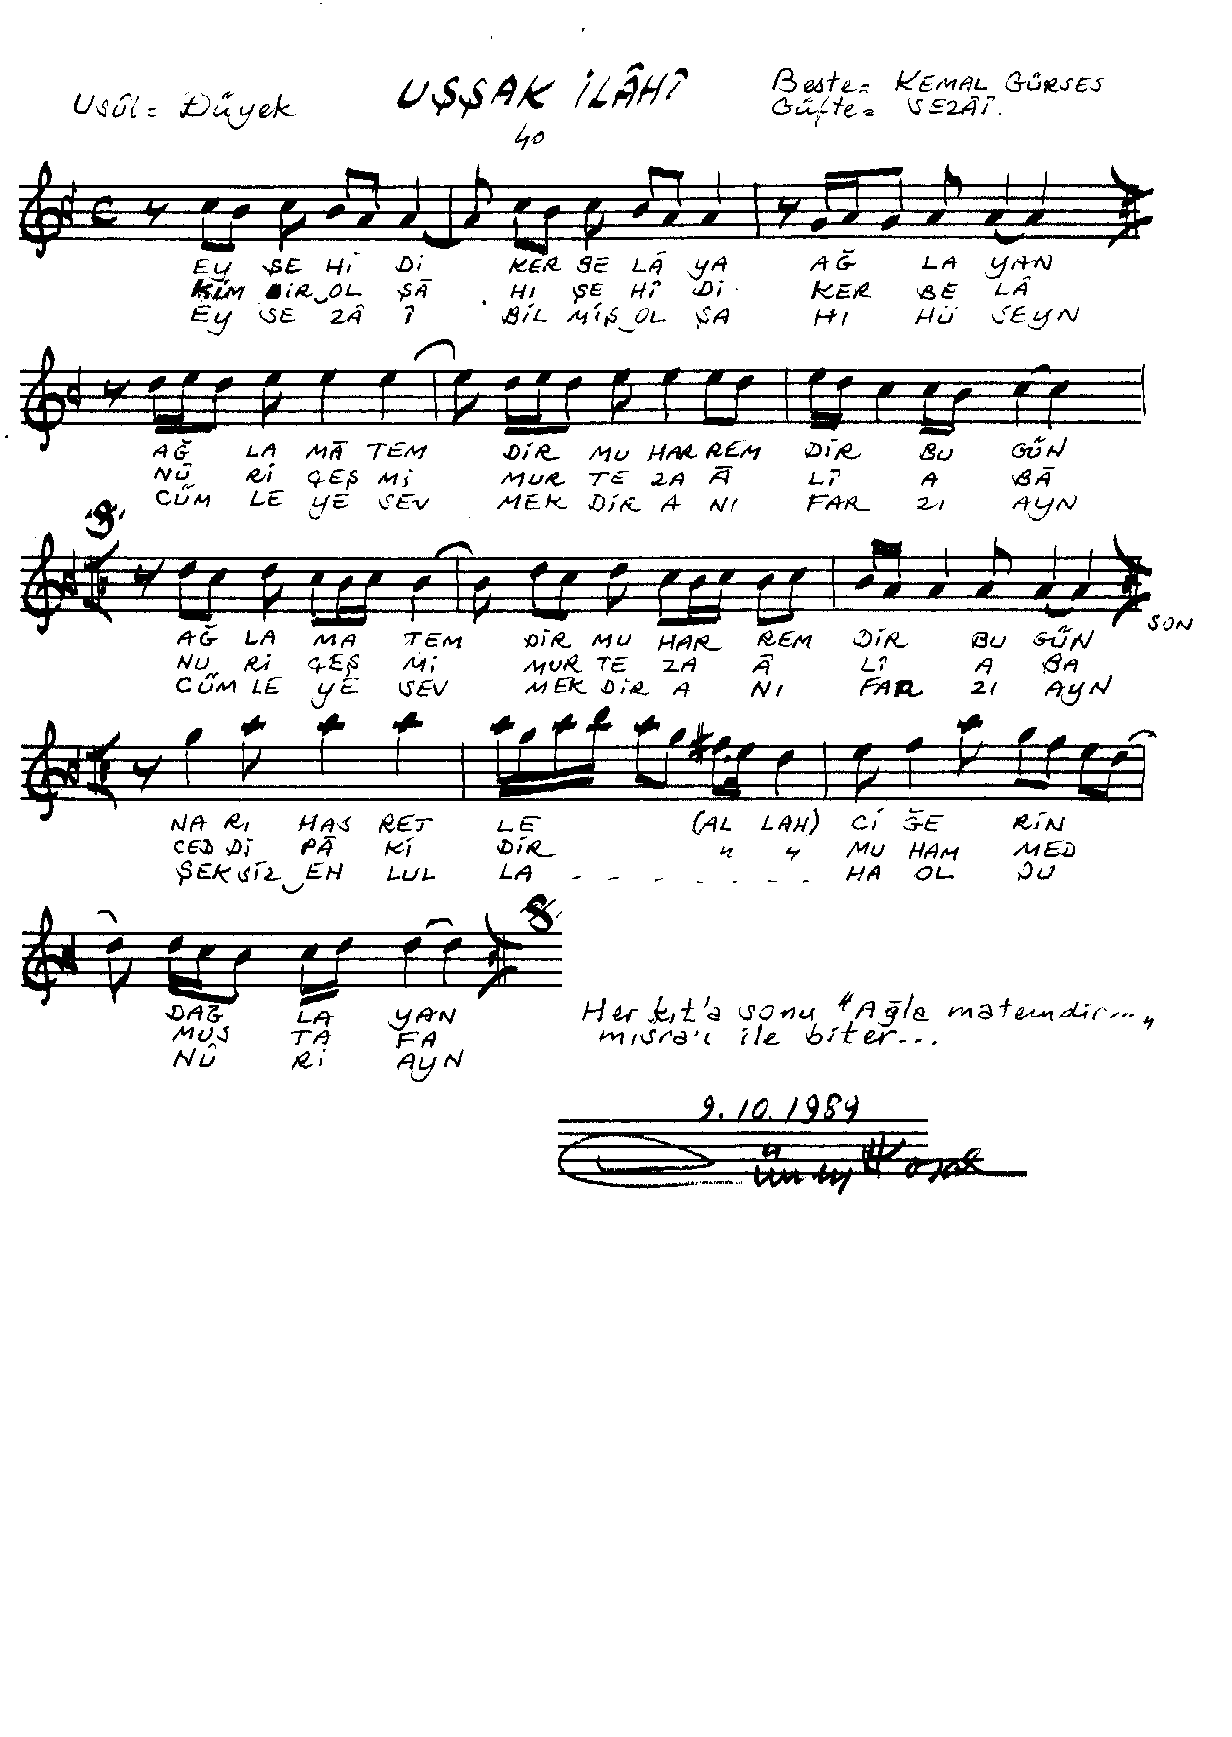 Usûl = Düyek
UŞŞAK İLÂHÎ
40
Beste = KEMAL GÜRSES
Güfte = SEZÂÎ.
EY ŞE HÎ DÎ KER BE LÂ YA AĞ LA YAN
KİM DİR OL ŞÂ HI ŞE HÎ DÎ KER BE LÂ
EY SE ZÂ Î BİL MİŞ OL ŞA HI HÜ SEYN
AĞ LA MÂ TEM DİR MU HAR REM DİR BU GÜN
NÛ Rİ ÇEŞ Mİ MUR TE ZA Â LÎ A BÂ
CÜM LE YE SEV MEK DİR A NI FAR ZI AYN
AĞ LA MA TEM DİR MU HAR REM DİR BU GÜN
SON
NU Rİ ÇEŞ Mİ MUR TE ZA Â LÎ A BA
CÜM LE YE SEV MEK DİR A NI FAR ZI AYN
NA RI HAS RET LE (AL LAH) Cİ ĞE RİN
CED Dİ PÂ Kİ DİR " " MU HAM MED
ŞEK SİZ EH LUL LA - - - - - - - HA OL DU
DAĞ LA YAN
MUS TA FA
NÛ Rİ AYN
Her kıt'a sonu "Ağla matemdir...."
mısra'ı ile biter...
9.10.1989